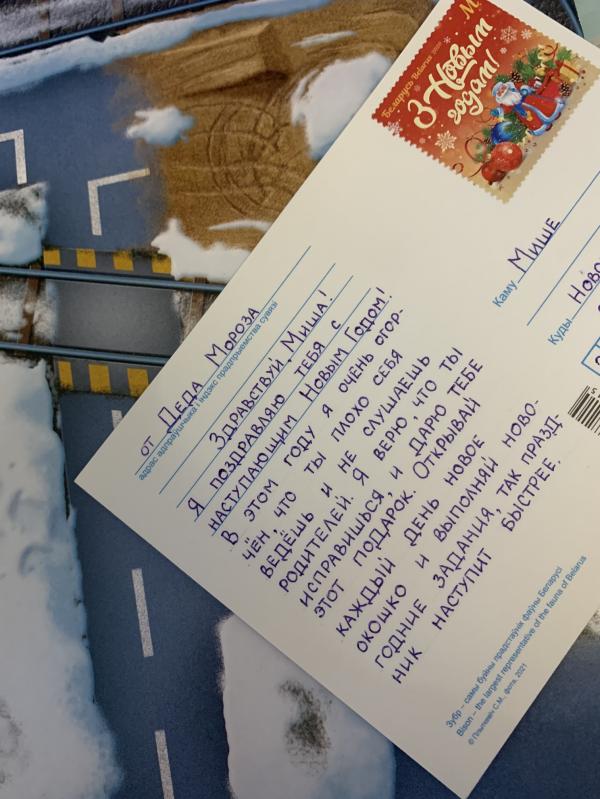 Беларусь Belarus
М
З Новым
годам!
от Деда Мороза
адрас адпраўшчыка і індэкс прадпрыемства сувязі
Здравствуй, Миша!
Я поздравляю тебя с
наступающим Новым Годом!
В этом году я очень огор-
чён, что ты плохо себя
ведёшь и не слушаешь
родителей. Я верю, что ты
исправишься, и дарю тебе
этот подарок. Открывай
каждый день новое
окошко и выполняй ново-
годние задания, так празд-
ник наступит быстрее.
Каму Мише
Куды Ново
Зубр – самы буйны прадстаўнік фаўны Беларусі
Bison – the largest representative of the fauna of Belarus
С.М., фота, 2021